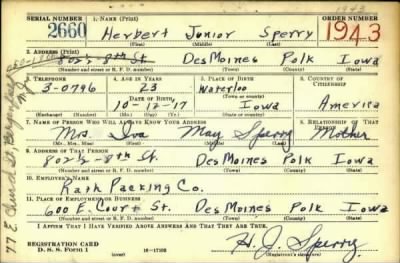 1943
SERIAL NUMBER 1. NAME (Print) ORDER NUMBER
2660 Herbert Junior Sperry 1943
(First) (Middle) (Last)
2. ADDRESS (Print)
802½ 8th St. Des Moines Polk Iowa
(Number and street or R. F. D. number) (Town) (County) (State)
3. TELEPHONE 4. AGE IN YEARS 5. PLACE OF BIRTH 6. COUNTRY OF CITIZENSHIP
3-0796 23 Waterloo
DATE OF BIRTH (Town or county)
10-12-17 Iowa America
(Exchange) (Number) (Mo.) (Day) (Yr.) (State or country)
7. NAME OF PERSON WHO WILL ALWAYS KNOW YOUR ADDRESS 8. RELATIONSHIP OF THAT PERSON
Mrs. Iva May Sperry Mother
(Mr., Mrs., Miss) (First) (Middle) (Last)
9. ADDRESS OF THAT PERSON
802½-8th St. Des Moines Polk Iowa
(Number and street or R. F. D. number) (Town) (County) (State)
10. EMPLOYER'S NAME
Rath Packing Co.
11. PLACE OF EMPLOYMENT OR BUSINESS
600 E. Court St. Des Moines Polk Iowa
(Number and street or R. F. D. number) (Town) (County) (State)
I AFFIRM THAT I HAVE VERIFIED ABOVE ANSWERS AND THAT THEY ARE TRUE.
REGISTRATION CARD
D. S. S. Form 1 (over) 16-17105 H. J. Sperry
(Registrant's signature)
77 E. Church St.